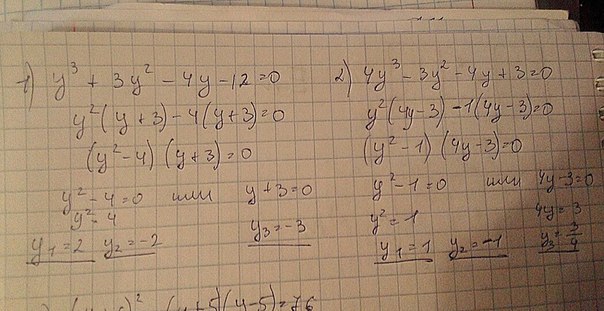 1) y³ + 3y² - 4y - 12 = 0
y²(y + 3) - 4(y + 3) = 0
(y² - 4) (y + 3) = 0
y² - 4 = 0 или y + 3 = 0
y² = 4
y₁ = 2 y₂ = -2 y₃ = -3
2) 4y³ - 3y² - 4y + 3 = 0
y²(4y - 3) - 1(4y - 3) = 0
(y² - 1) (4y - 3) = 0
y² - 1 = 0 или 4y - 3 = 0
y² = 1 4y = 3
y₁ = 1 y₂ = -1 y₃ = 3/4
)² (y + 5)(y - 5) = 76